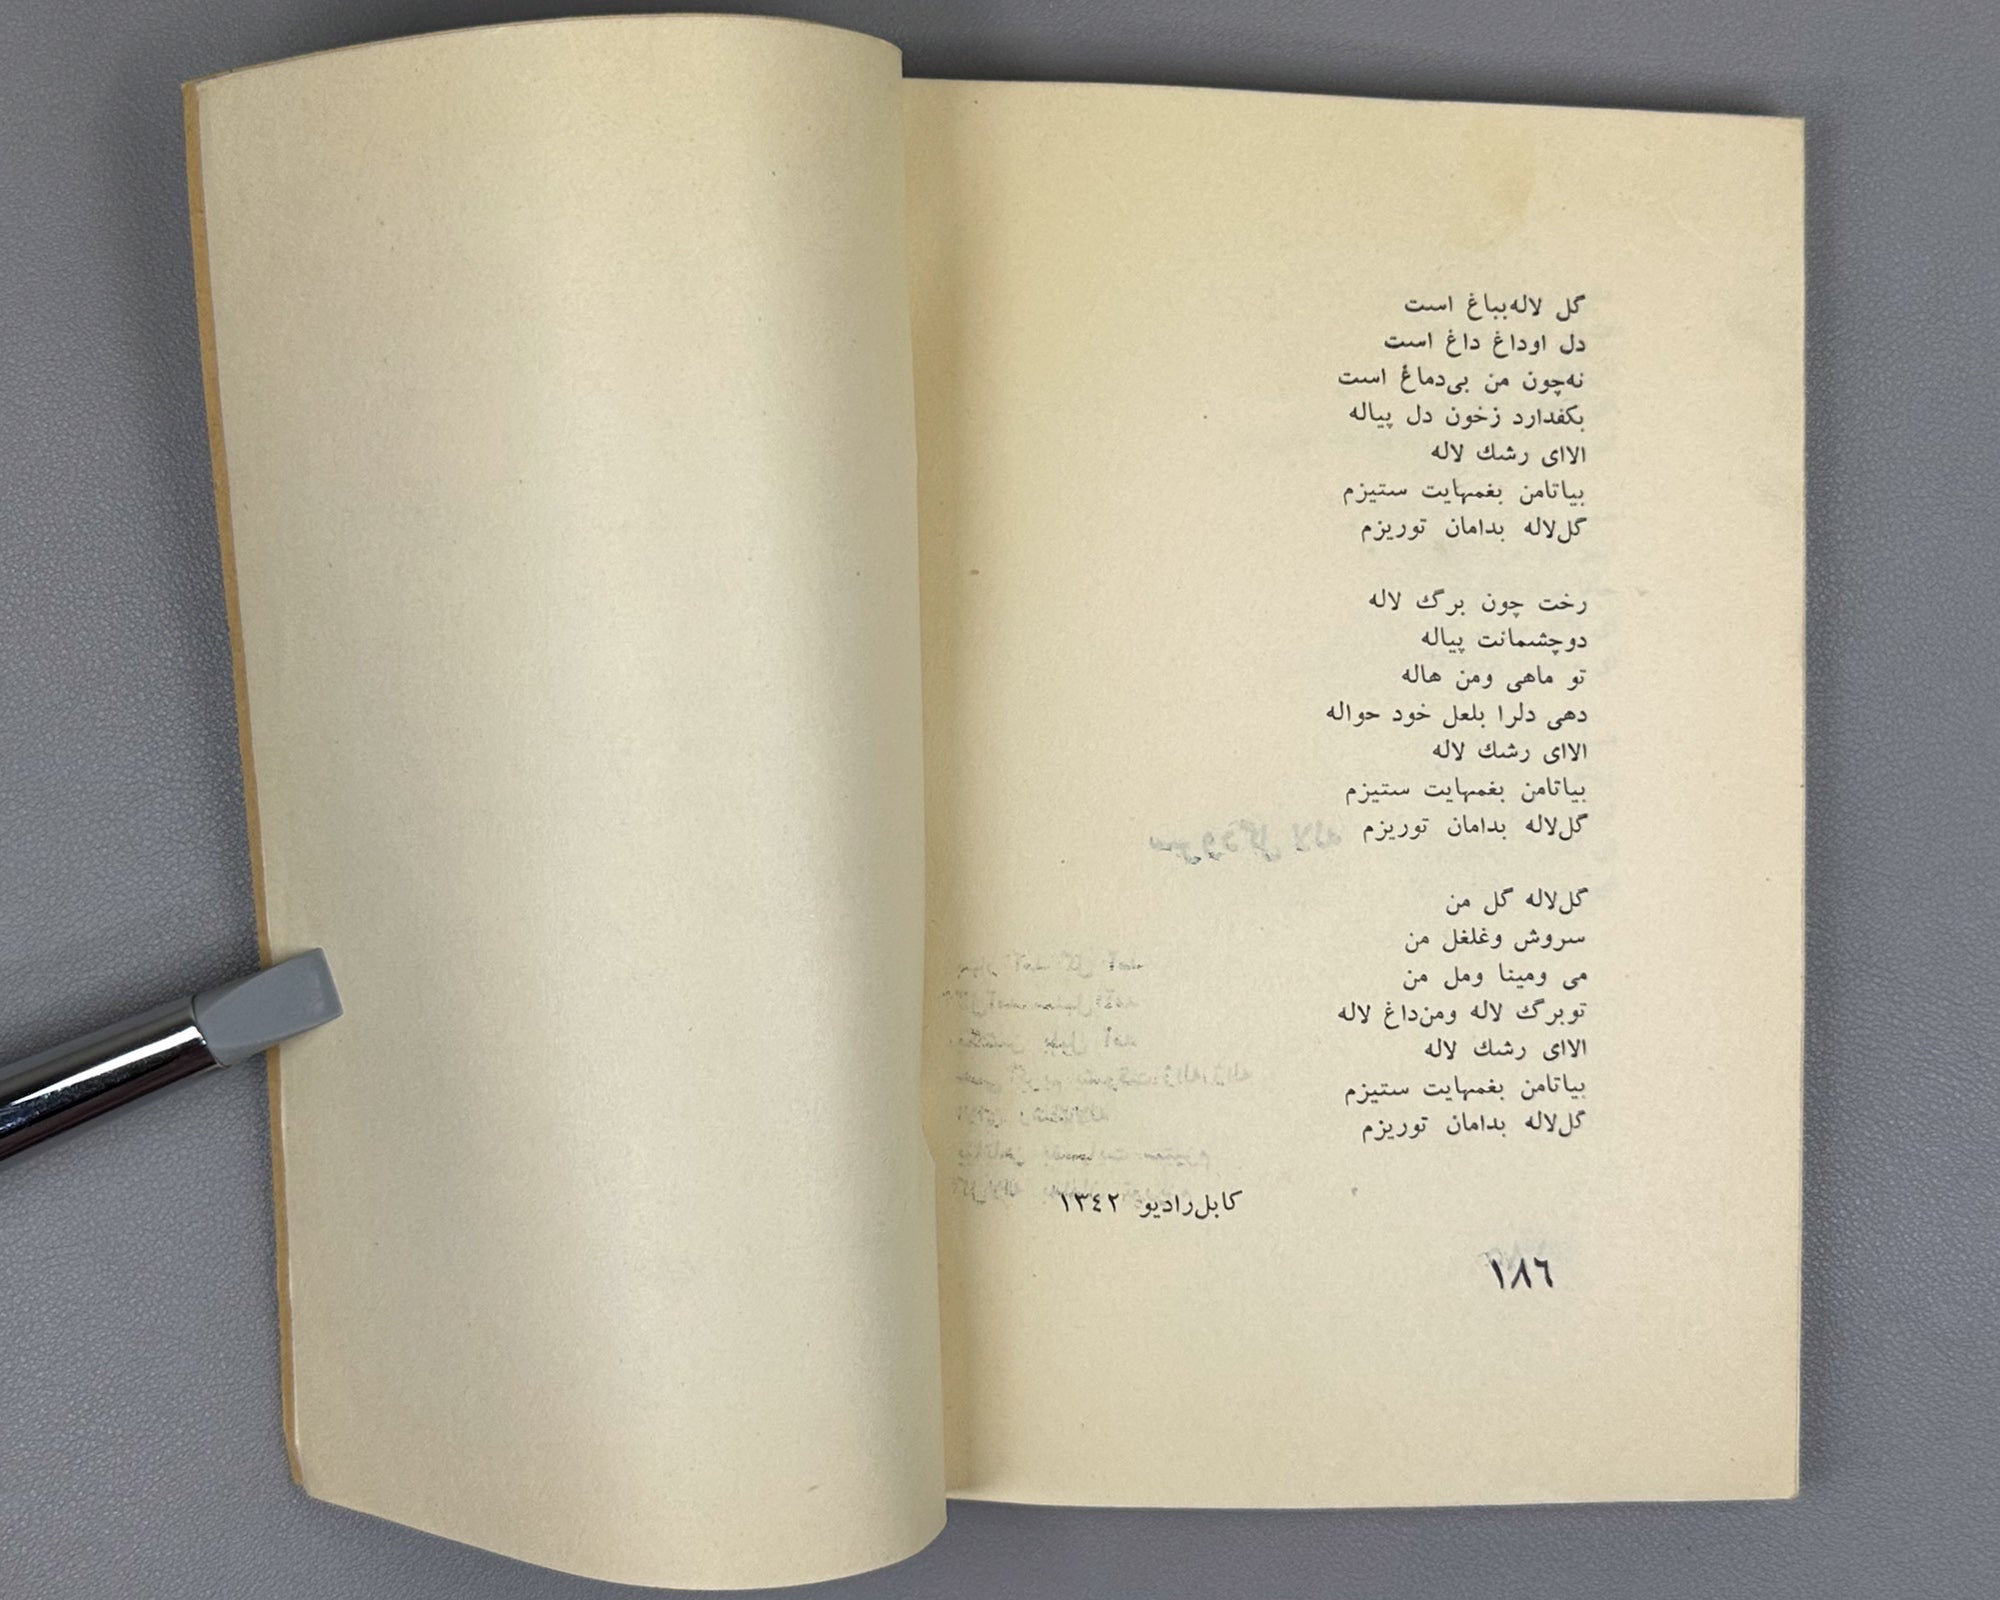 گل لاله بباغ است
دل اوداغ داغ است
نه‌چون من بی‌دماغ است
بکفدارد زخون دل پیاله
الاای رشك لاله
بیاتامن بغمهایت ستیزم
گل‌لاله بدامان توریزم
رخت چون برگ لاله
دوچشمانت پیاله
تو ماهی ومن هاله
دهی دلرا بلعل خود حواله
الاای رشك لاله
بیاتامن بغمهایت ستیزم
گل‌لاله بدامان توریزم
گل‌لاله گل من
سروش وغلغل من
می ومینا ومل من
توبرگ لاله ومن‌داغ لاله
الاای رشك لاله
بیاتامن بغمهایت ستیزم
گل‌لاله بدامان توریزم
کابل‌رادیو ١٣٤٢
١٨٦